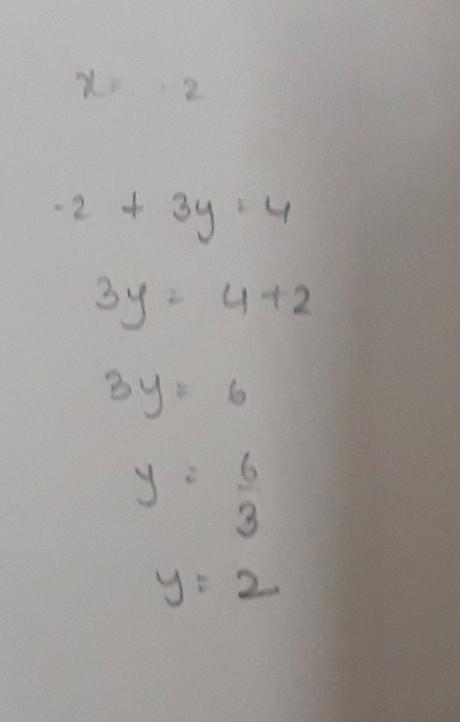 x = -2
-2 + 3y = 4
3y = 4 + 2
3y = 6
y = 6
3
y = 2